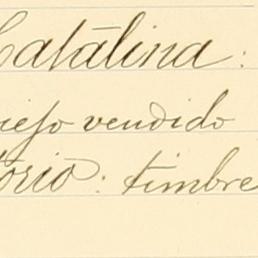 Catálina:
viejo vendido
torio: timbre